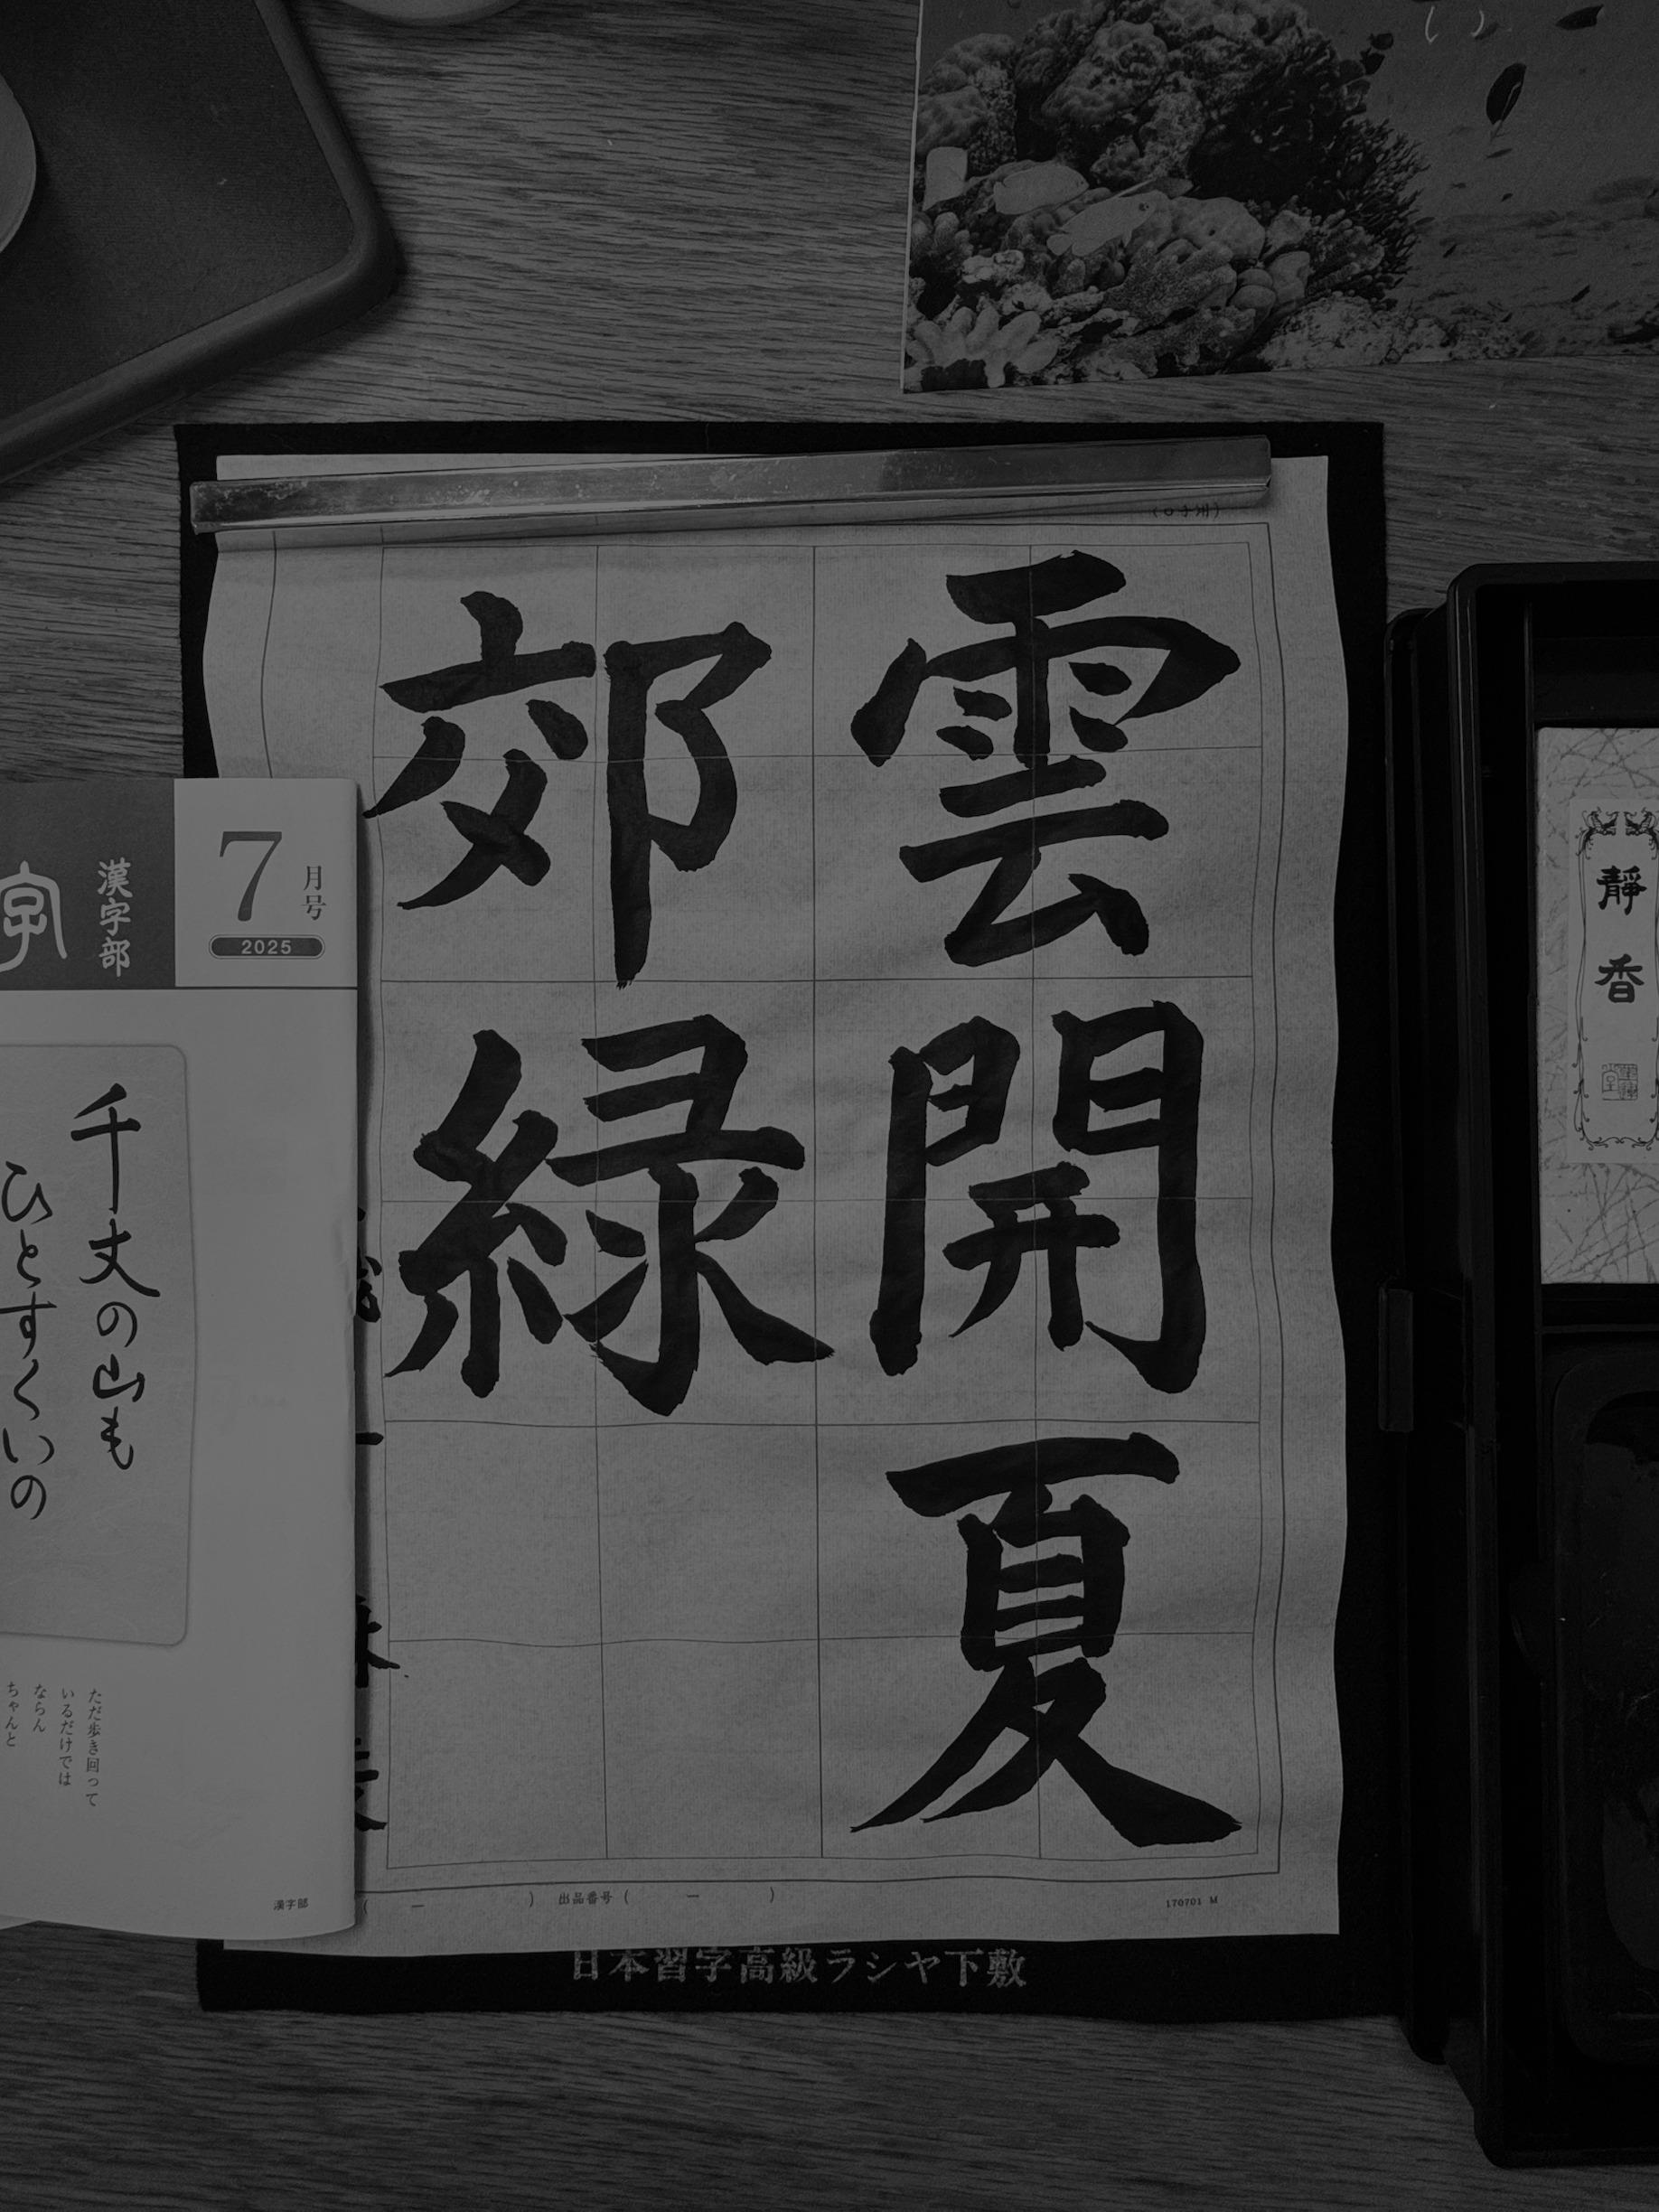 雲開夏
郊緑
7
月号
2025
漢字部
字
千丈の山も
ひとすくいの
ただ歩き回って
いるだけでは
ならん
ちゃんと
漢字部
出品番号(　ー　)
170701 M
日本習字高級ラシヤ下敷
靜香